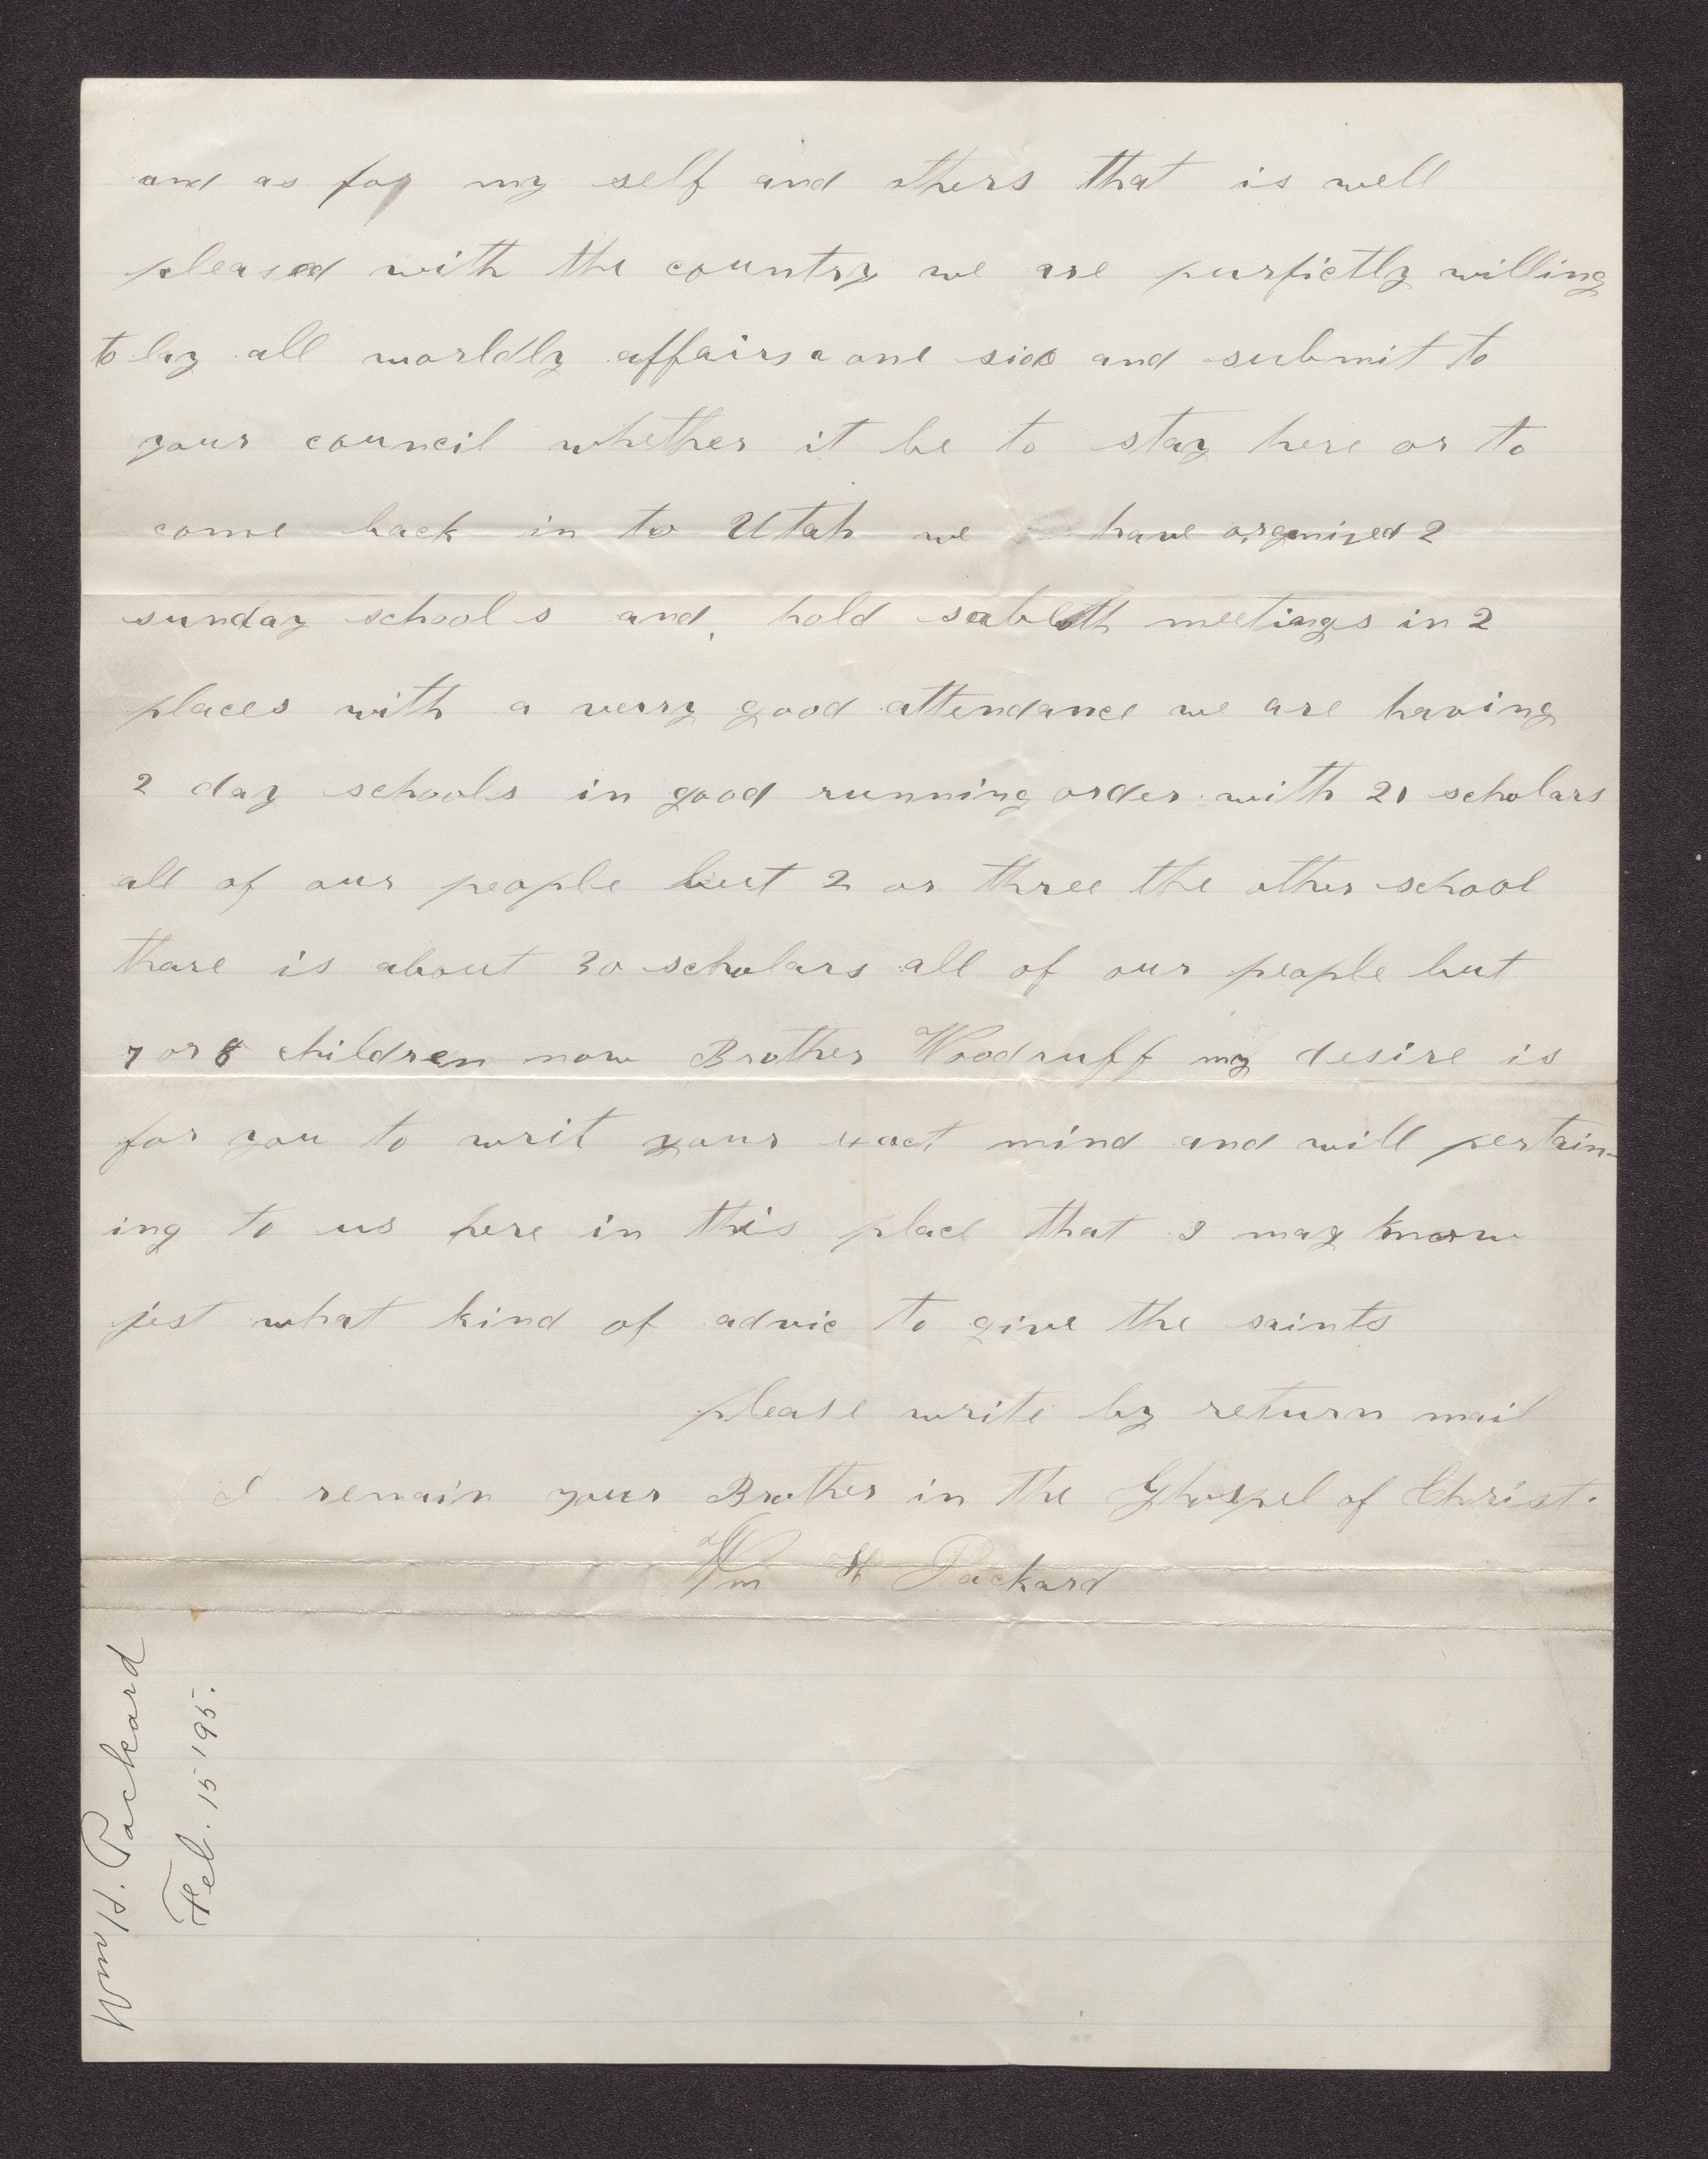 and as for my self and others that is well
pleased with the country we are purfictly willing
to lay all worldly affairs a one side and submit to
your council whether it be to stay here or to
come back in to Utah we have orgenized 2
sunday schools and hold sabbeth meetings in 2
places with a verry good attendance we are having
2 day schools in good running order with 21 scholars
all of our people but 2 or three the other school
thare is about 30 scholars all of our people but
7 or 8 children now Brother Woodruff my desire is
for you to writ your exact mind and will pertain-
ing to us here in this place that I may know
jest what kind of advic to give the saints
please write by return mail
I remain your Brother in the Ghospel of Christ.
Wm H Packard
Wm H. Packard
Feb. 15 '95.